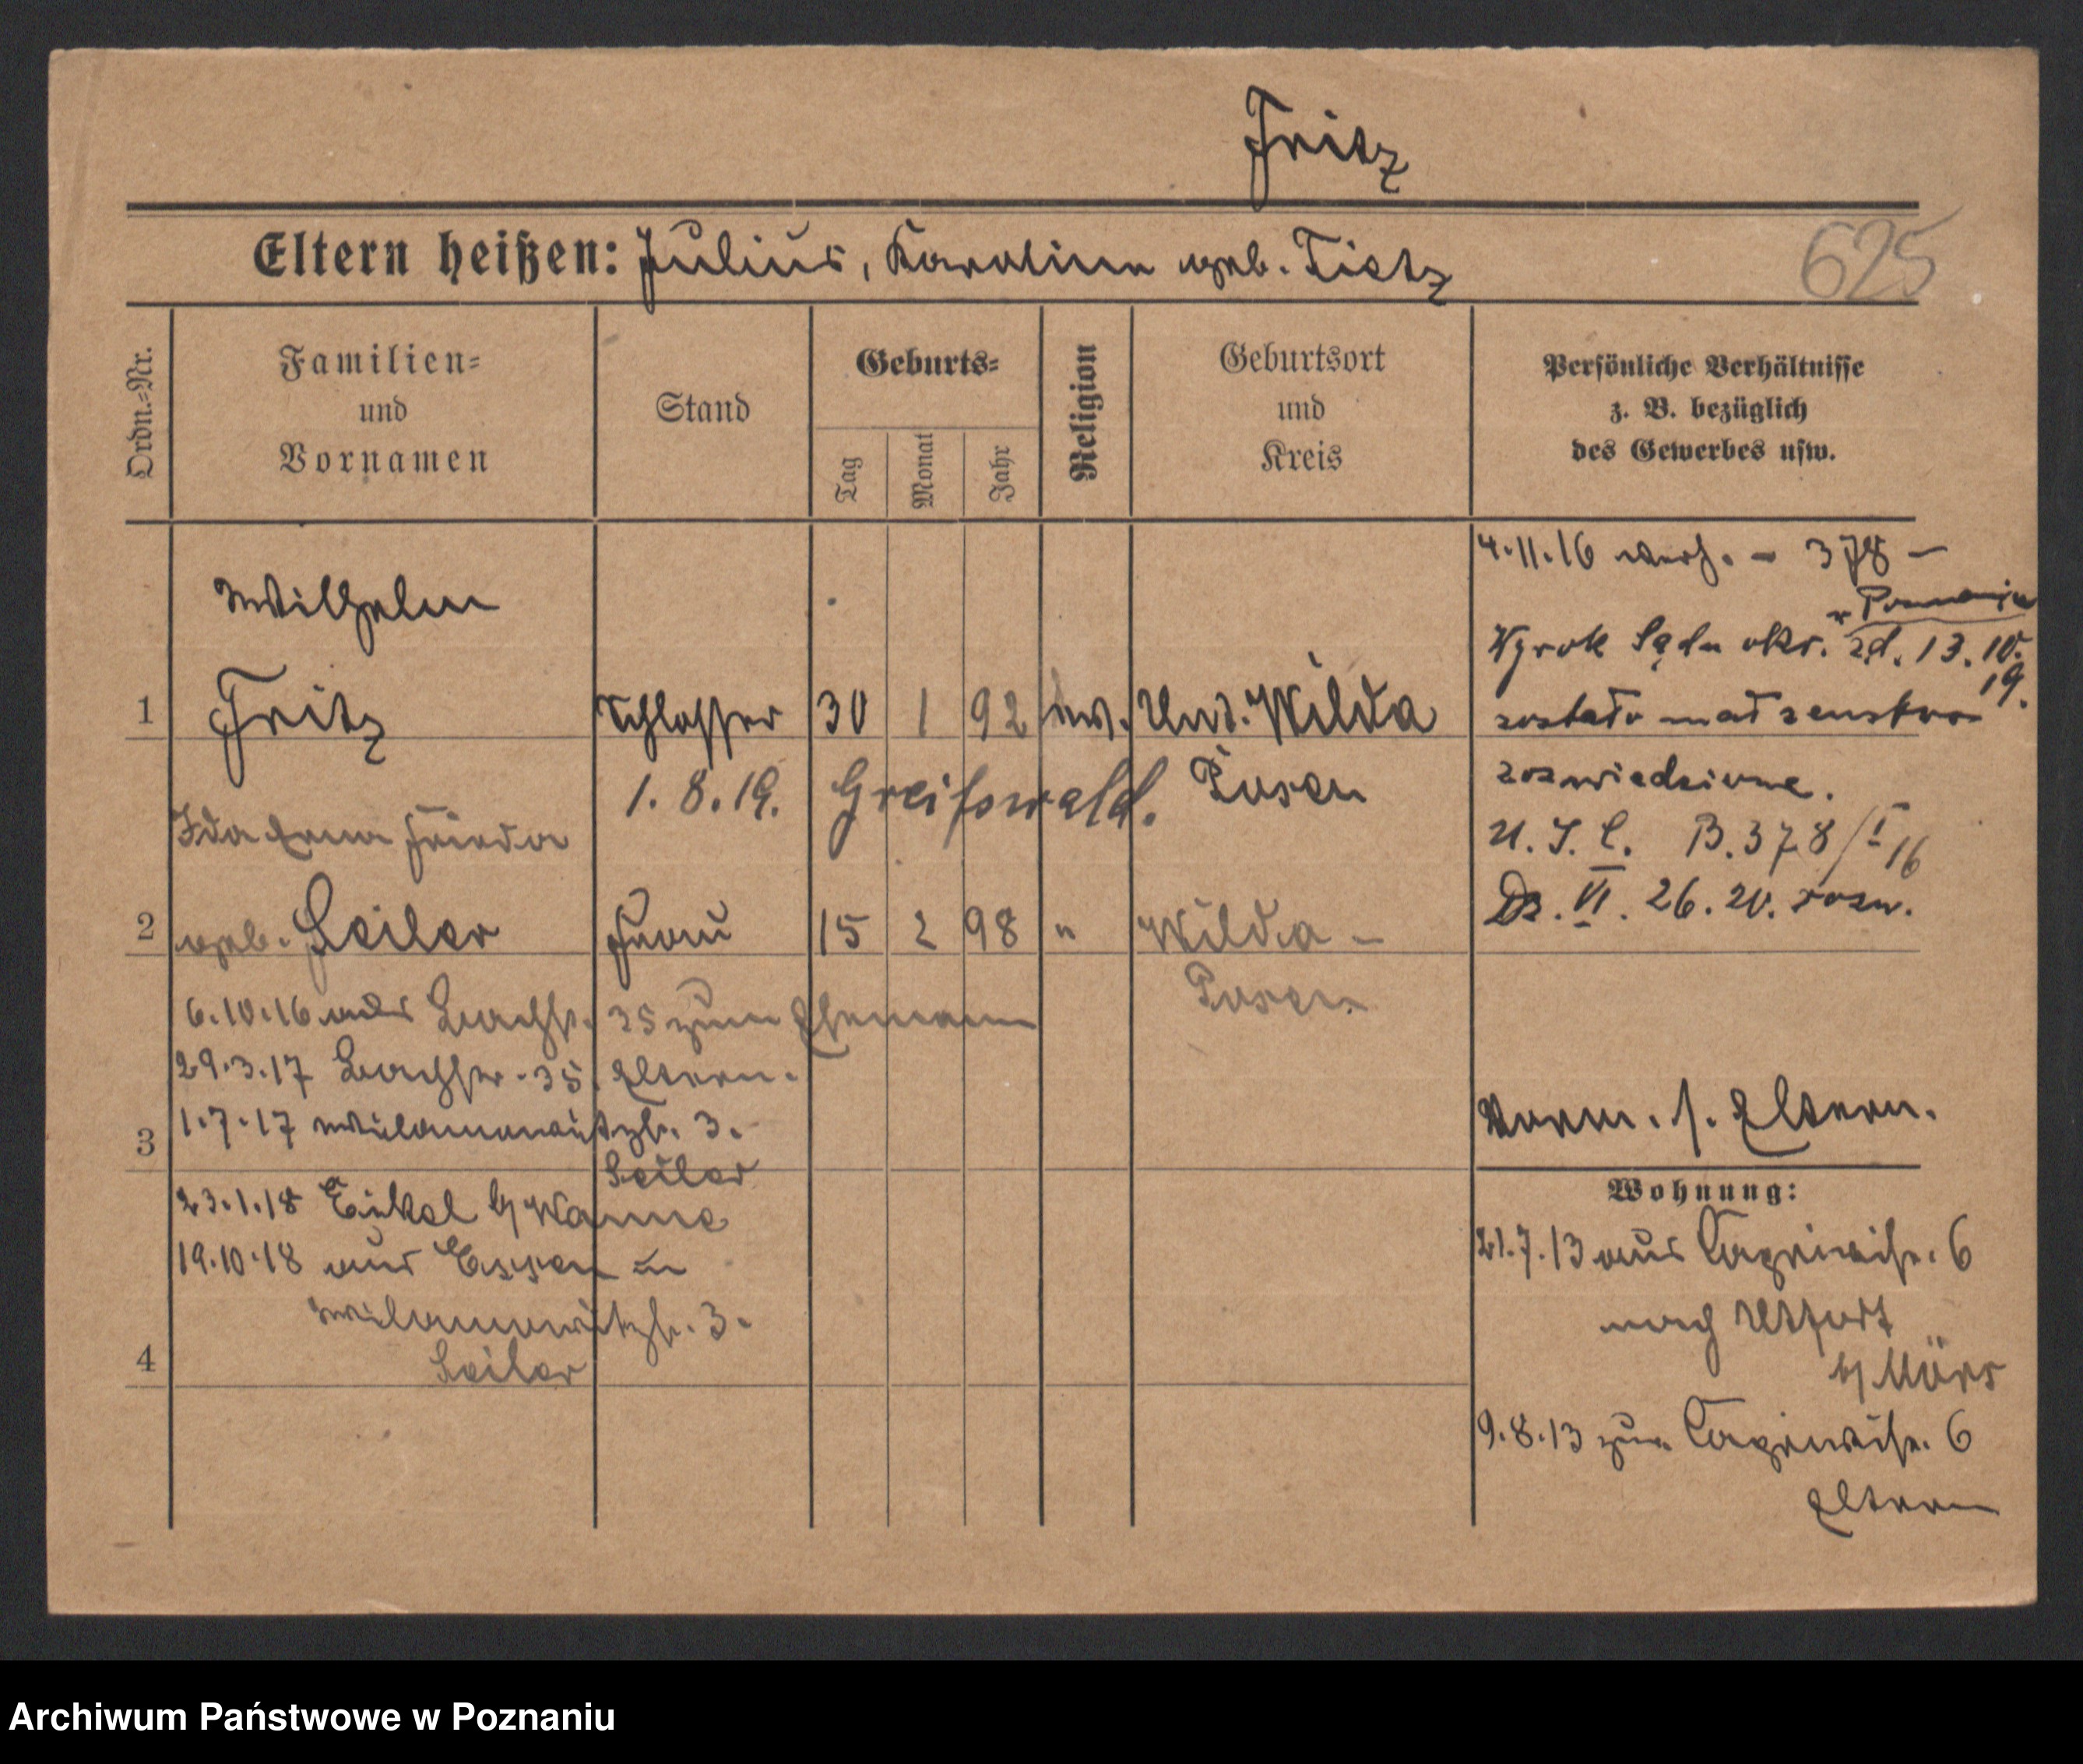 Fritz
Eltern heißen: Julius, Karoline geb. Tietz
625
Ordn.-Nr.
Familien-
und
Vornamen
Stand
Geburts-
Tag
Monat
Jahr
Religion
Geburtsort
und
Kreis
Persönliche Verhältnisse
z. B. bezüglich
des Gewerbes usw.
Wilhelm
1 Fritz Schlosser 30 1 92 ev. Unt. Wilda
Posen
1.8.19. Greifswald.
Ida Erna Frieda
2 geb. Seiler Frau 15 2 98 " Wilda -
Posen
6.10.16 35 zum Ehemann
29.3.17 35. Eltern.
3 1.7.17 Wilamowitzstr. 3.
Seiler
23.1.18 Eickel b/ Wanne
19.10.18 aus Essen in
Wilamowitzstr. 3.
4 Seiler
4.11.16 verh. - 378 -
w Poznaniu
Wyrok Sądu okr. zd. 13.10.
19.
zostało małżeństwo
rozwiedzione.
U.S.C. B.378/I 16
Dz. VI. 26.20. rozw.
Verm. s. Eltern.
Wohnung:
21.7.13 aus 6
nach Utfort
b/ Mörs
9.8.13 zur 6
Eltern
Archiwum Państwowe w Poznaniu